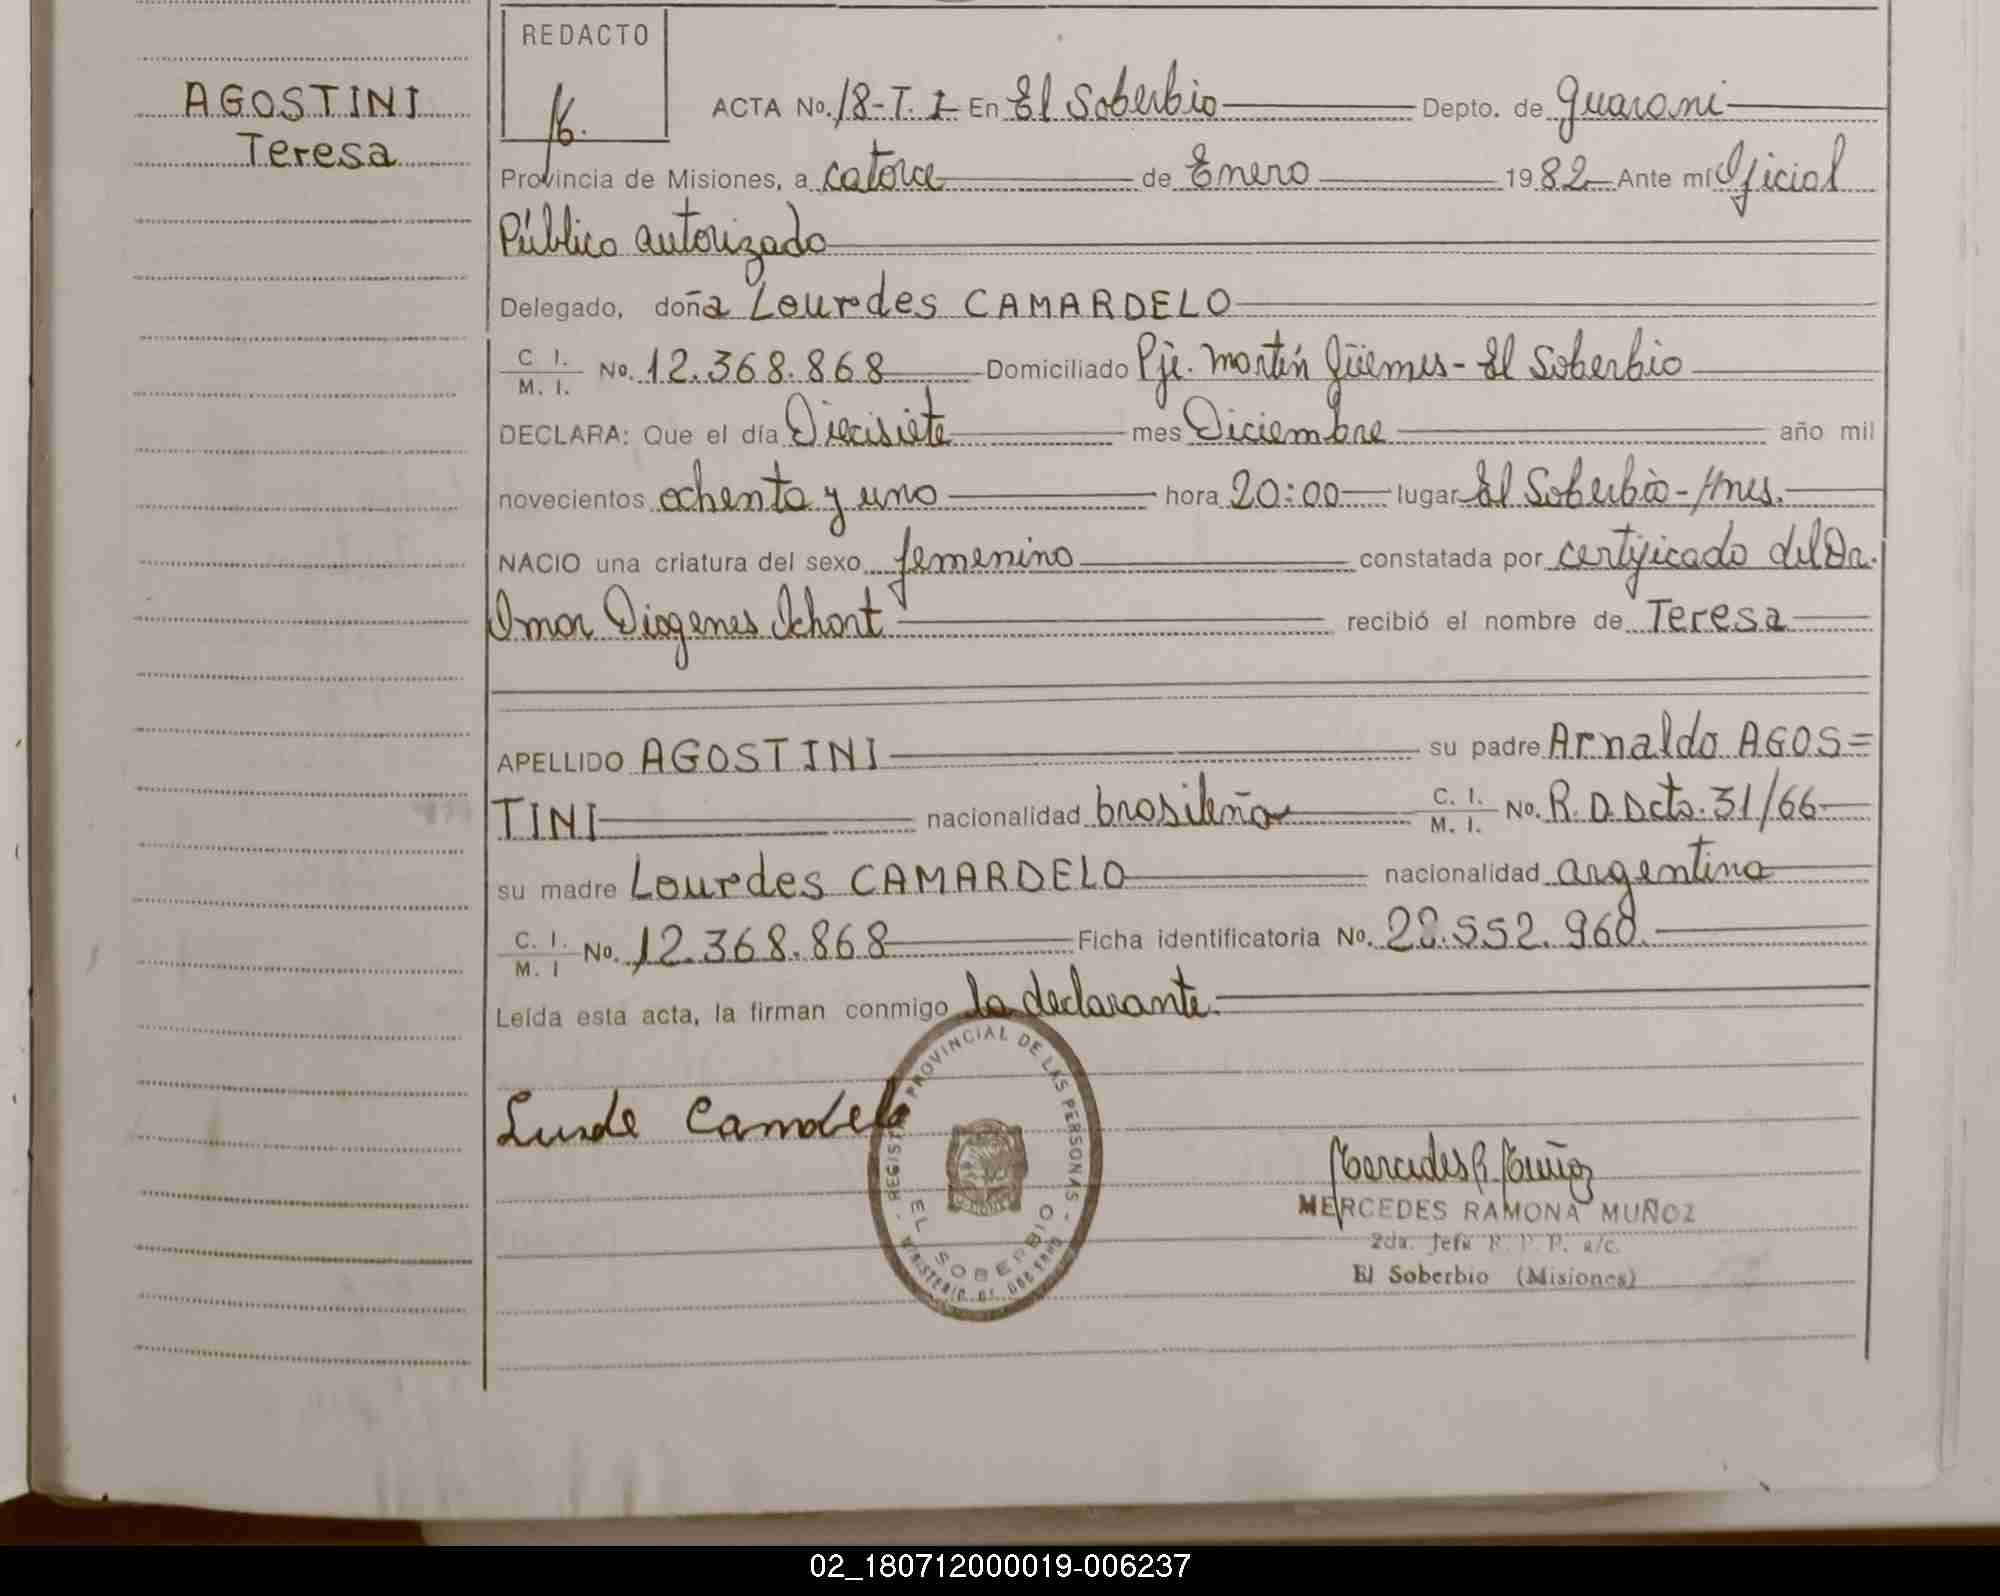 REDACTO
AGOSTINI
Teresa
ACTA No. 18-T. I- En El Soberbio Depto. de Guarani
Provincia de Misiones, a catorce de Enero 1982 Ante mí Oficial
Público autorizado
Delegado, doña Lourdes CAMARDELO
C. I.
M. I. No. 12.368.868 Domiciliado Pje. Martín Güemes - El Soberbio
DECLARA: Que el día Diecisiete mes Diciembre año mil
novecientos ochenta y uno hora 20:00 lugar El Soberbio - Mnes.
NACIO una criatura del sexo femenino constatada por certificado del Dr.
Omar Diogenes recibió el nombre de Teresa
APELLIDO AGOSTINI su padre Arnaldo AGOS=
TINI nacionalidad brasileña C. I.
M. I. No. R.D. Dcto. 31/66
su madre Lourdes CAMARDELO nacionalidad argentina
C. I.
M. I No. 12.368.868 Ficha identificatoria No. 28.552.960.
Leída esta acta, la firman conmigo la declarante.
REGISTRO PROVINCIAL DE LAS PERSONAS -
EL SOBERBIO
MINISTERIO DE GOBIERNO
Mercedes R. Muñoz
MERCEDES RAMONA MUÑOZ
2da. Jefa R. P. P. a/c.
El Soberbio (Misiones)
02_180712000019-006237